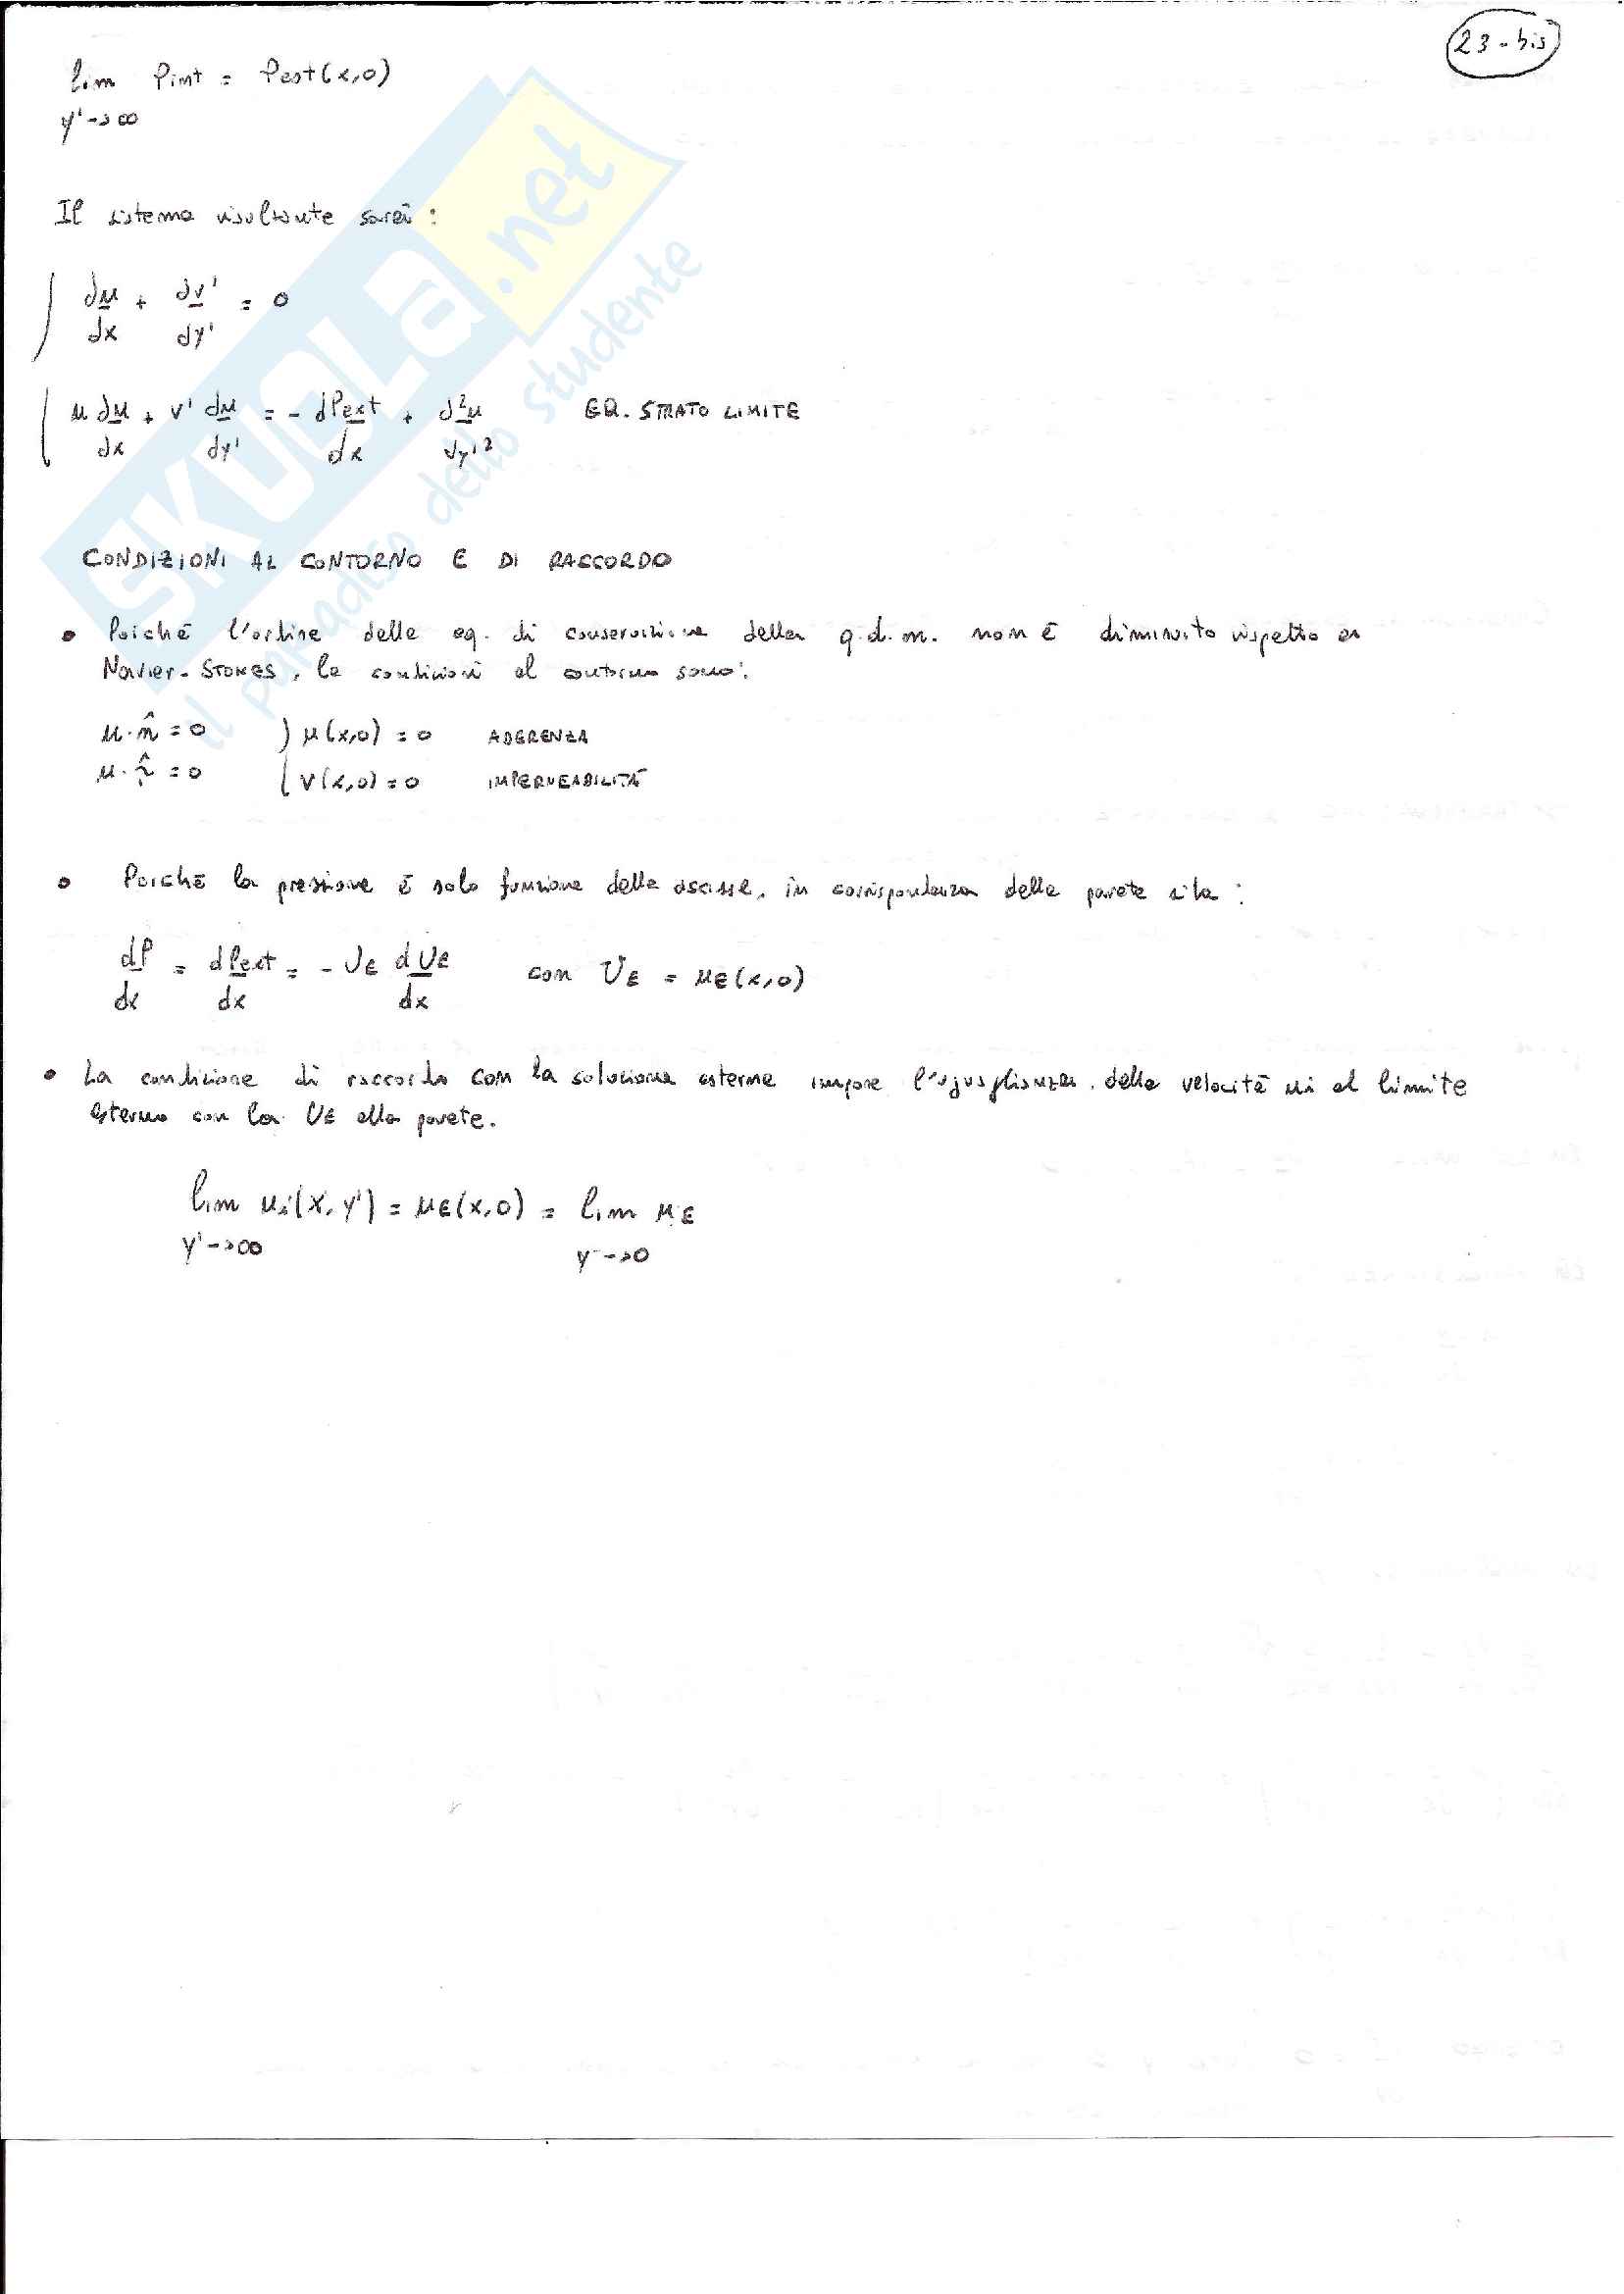 23-bis
lim Pint = Pest(x,0)
y'->∞
Il sistema risultante sarà:
du/dx + dv'/dy' = 0
u du/dx + v' du/dy' = - dPext/dx + d²u/dy'² EQ. STRATO LIMITE
CONDIZIONI AL CONTORNO E DI RACCORDO
• Poiché l'ordine delle eq. di conservazione della q.d.m. non è diminuito rispetto a
Navier-STOKES, le condizioni al contorno sono:
u·n̂=0 u(x,0)=0 ADERENZA
u·τ̂=0 v(x,0)=0 IMPERMEABILITÀ
• Poiché la pressione è solo funzione delle ascisse, in corrispondenza della parete si ha:
dP/dx = dPext/dx = - UE dUE/dx con UE = uE(x,0)
• La condizione di raccordo con la soluzione esterna impone l'uguaglianza della velocità ui al limite
esterno con la UE alla parete.
lim ui(x,y') = uE(x,0) = lim uE
y'->∞ y->0
SKUOLA.net
il paradiso dello studente